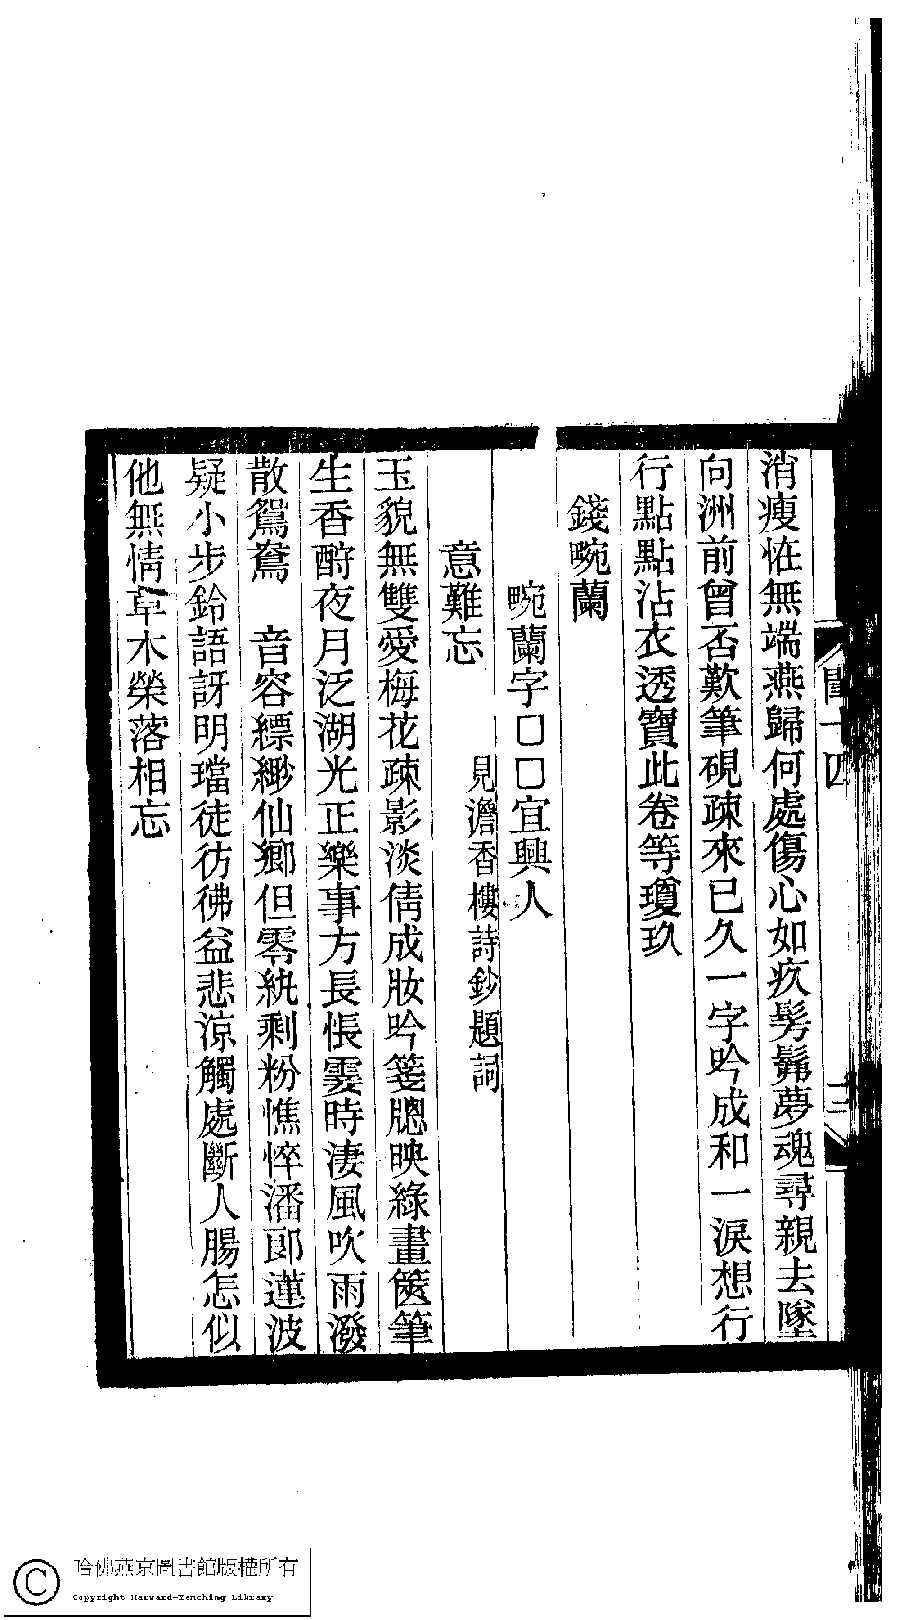 消瘦恠無端燕歸何處傷心如疚髣髴夢魂尋親去墜
向洲前曾否歎筆硯疎來已久一字吟成和一淚想行
行點點沾衣透寶此卷等瓊玖
錢畹蘭
畹蘭字□□宜興人
意難忘 見澹香樓詩鈔題詞
玉貌無雙愛梅花疎影淡倩成妝吟箋牕映綠畫篋筆
生香酹夜月泛湖光正樂事方長悵霎時淒風吹雨潑
散鴛鴦 音容縹緲仙鄉但零紈剩粉憔悴潘郎蓮波
疑小步鈴語訝明璫徒彷彿益悲涼觸處斷人腸怎似
他無情草木榮落相忘
閨十四
二
哈佛燕京圖書館版權所有
Copyright Harvard-Yenching Library